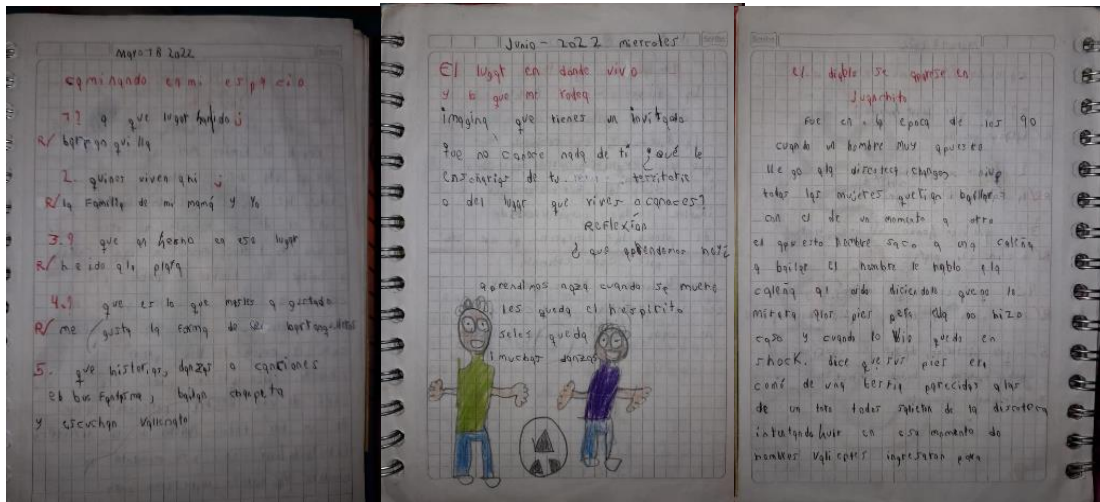 Mayo 18 2022
caminando en mi espacio
1? a que lugar haido
R/ barranquilla
2. quines viven ahi
R/ la Familia de mi mamá y yo
3.? que as hecho en ese lugar
R/ he ido a la playa
4.? que es lo que mas te a gustado
R/ me gusta la Forma de ser
5. que historias, danzas o canciones
El bus Fantasma, bailan champeta
y escuchan vallenato
Junio - 2022 miercoles
El lugar en donde vivo
y lo que me rodea
imagina que tienes un invitado
que no conoce nada de ti ¿qué le
enseñarias de tu territorio
o del lugar que vives o conoces?
REFLEXÍON
¿ que aprendemos hoy?
aprendimos cuando se muere
les queda el hespirito
seles queda
muchas danzas
el diablo se aparese en
Juanchito
Fue en la epoca de los 90
cuando un hombre muy apuesto
llego ala discoteca changos
todas las mujeres querian bailar
con el de un momento a otro
el apuesto hombre saco a una caleña
a bailar el hombre le hablo ala
caleña al oido diciendole que no lo
mirara alos pies pero ella no hizo
caso y cuando lo vio quedo en
shock. dice que sus pies era
como de una bestia parecidas alas
de un toro todos salieron de la discoteca
intentando huir en ese momento do
hombres valientes ingresaron para